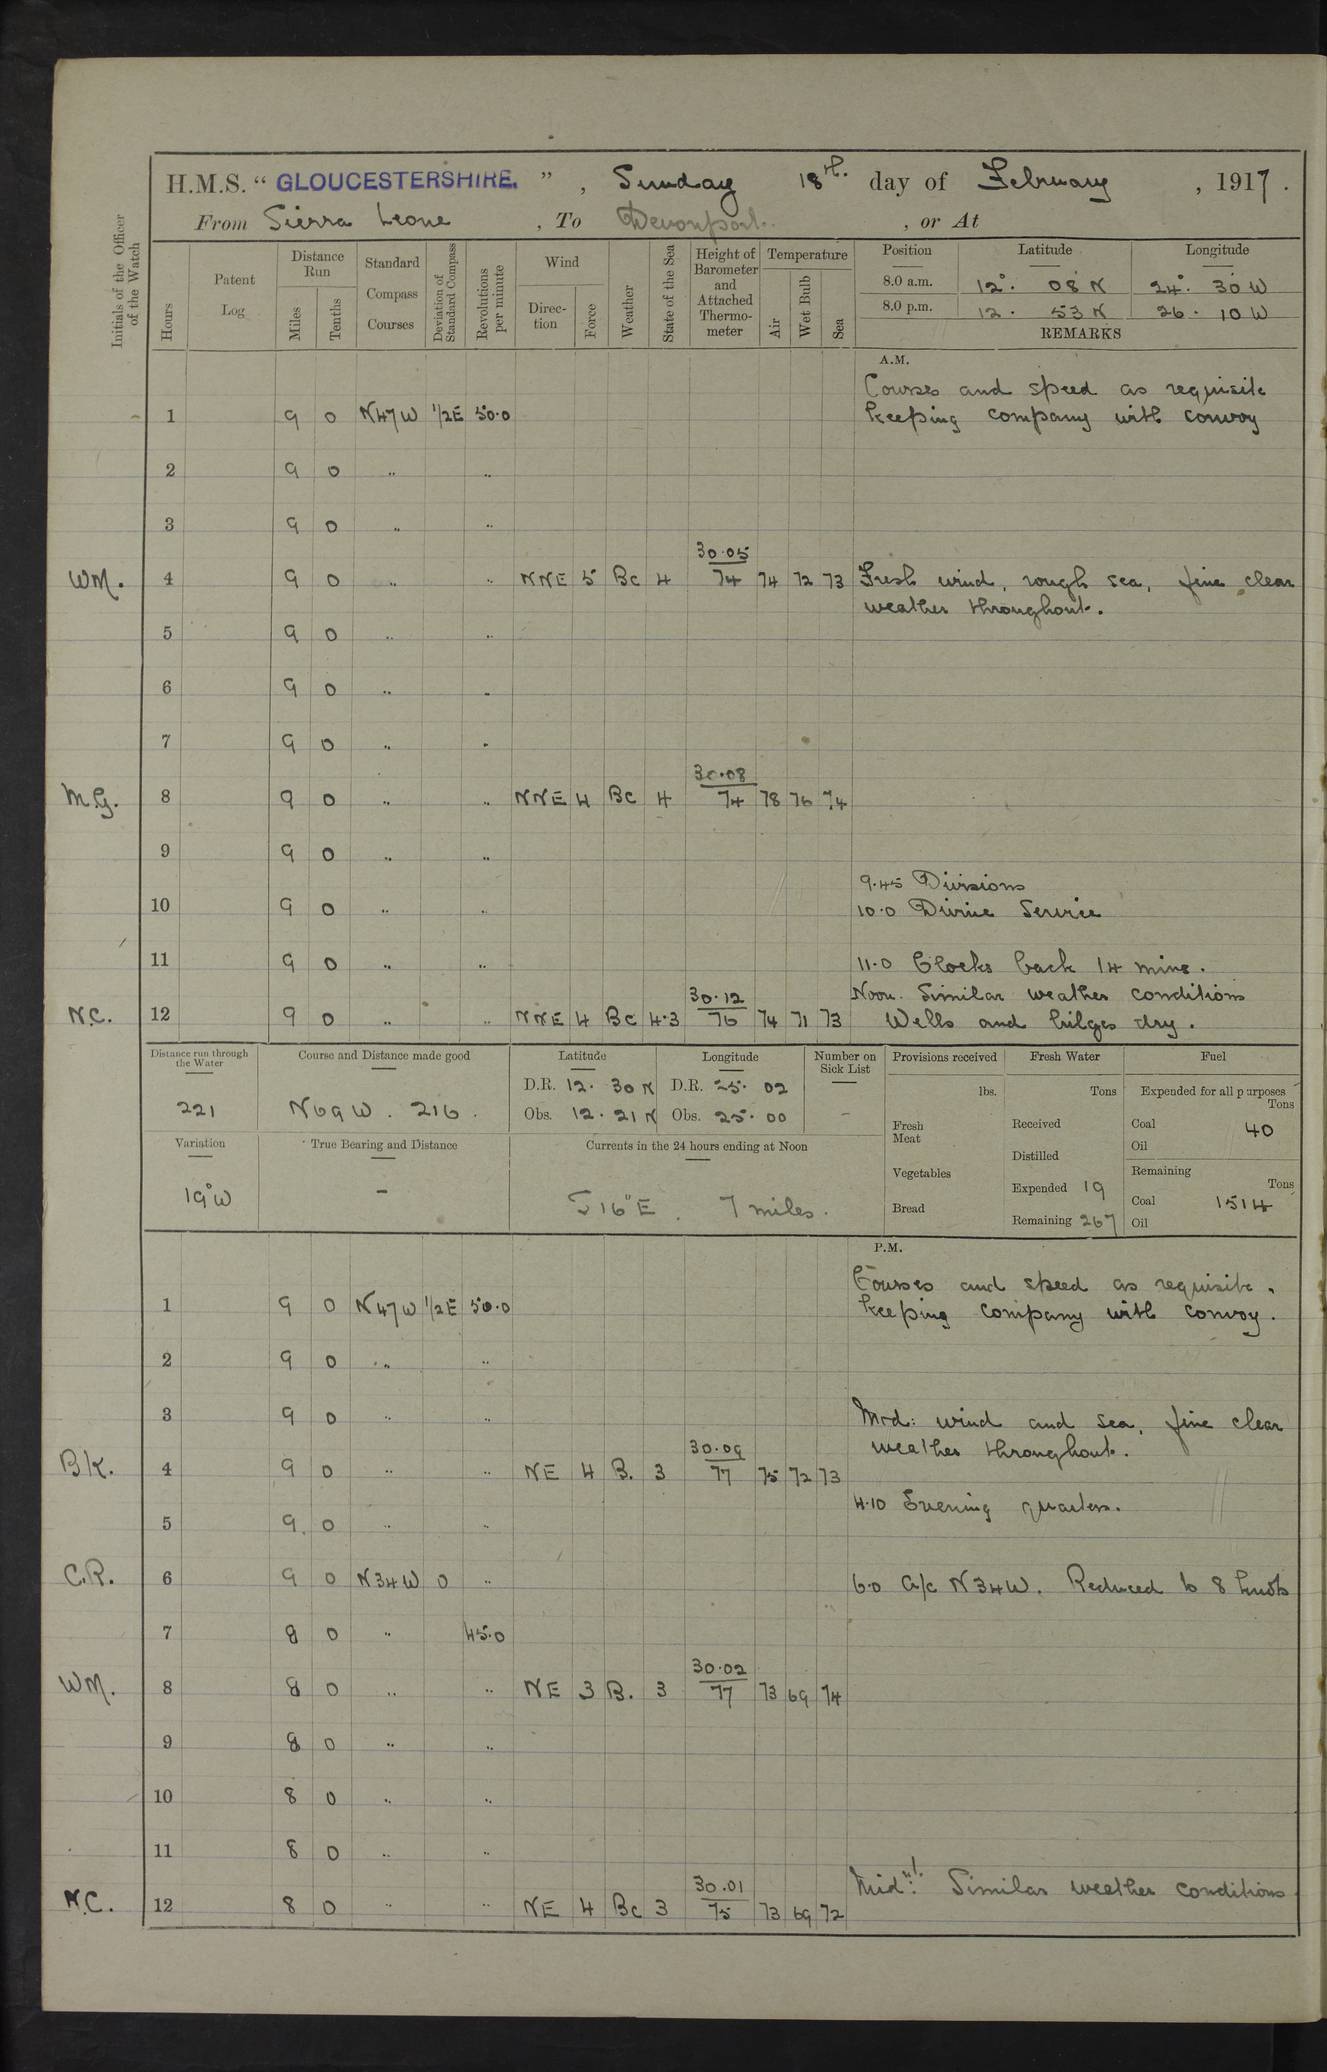 H.M.S. “ GLOUCESTERSHIRE. ” , Sunday 18th. day of February , 1917 .
From Sierra Leone , To Devonport. , or At
Initials of the Officer of the Watch
Hours
Patent Log
Distance Run
Miles
Tenths
Standard Compass Courses
Deviation of Standard Compass
Revolutions per minute
Wind
Direction
Force
Weather
State of the Sea
Height of Barometer and Attached Thermometer
Temperature
Air
Wet Bulb
Sea
Position Latitude Longitude
8.0 a.m. 12°. 08 N 24°. 30 W
8.0 p.m. 12. 53 N 26. 10 W
REMARKS
A.M.
Courses and speed as requisite
1 9 0 N47W 1/2E 50.0 keeping company with convoy
2 9 0 " "
3 9 0 " "
30.05
WM. 4 9 0 " " NNE 5 Bc 4 74 74 72 73 Fresh wind, rough sea, fine clear
weather throughout.
5 9 0 " "
6 9 0 " "
7 9 0 " "
30.08
M.G. 8 9 0 " " NNE 4 Bc 4 74 78 76 74
9 9 0 " "
9.45 Divisions
10 9 0 " " 10.0 Divine Service
11 9 0 " " 11.0 Clocks back 14 mins.
30.12 Noon. Similar weather conditions
N.C. 12 9 0 " " NNE 4 Bc 4.3 76 74 71 73 Wells and bilges dry.
Distance run through the Water
221
Course and Distance made good
N69W. 216.
Latitude Longitude
D.R. 12. 30 N D.R. 25. 02
Obs. 12. 21 N Obs. 25. 00
Number on Sick List
-
Variation
19°W
True Bearing and Distance
-
Currents in the 24 hours ending at Noon
S16°E. 7 miles.
Provisions received
lbs.
Fresh Meat
Vegetables
Bread
Fresh Water
Tons
Received
Distilled
Expended 19
Remaining 267
Fuel
Expended for all purposes
Tons
Coal 40
Oil
Remaining
Tons
Coal 1514
Oil
P.M.
Courses and speed as requisite.
1 9 0 N47W 1/2E 50.0 keeping company with convoy.
2 9 0 " "
3 9 0 " " Mod: wind and sea, fine clear
30.09 weather throughout.
BK. 4 9 0 " " NE 4 B. 3 77 75 72 73
4.10 Evening quarters.
5 9. 0 " "
C.R. 6 9 0 N34W 0 " 6.0 A/c N34W. Reduced to 8 knots
7 8 0 " 45.0
30.02
WM. 8 8 0 " " NE 3 B. 3 77 73 69 74
9 8 0 " "
10 8 0 " "
11 8 0 " "
30.01 Midt: Similar weather conditions.
N.C. 12 8 0 " " NE 4 Bc 3 75 73 69 72